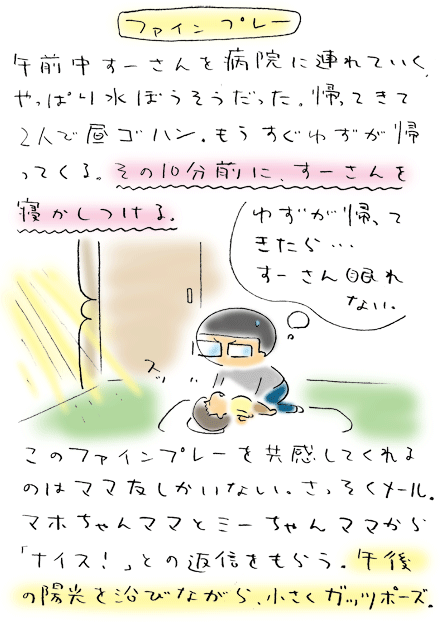 ファインプレー
午前中すーさんを病院に連れていく、
やっぱり水ぼうそうだった。帰ってきて
2人で昼ゴハン。もうすぐゆずが帰
ってくる。その10分前に、すーさんを
寝かしつける。
ゆずが帰って
きたら…
すーさん眠れ
ない。
ズッ…
このファインプレーを共感してくれる
のはママ友しかいない。さっそくメール。
マホちゃんママとミーちゃんママから
「ナイス!」との返信をもらう。午後
の陽光を浴びながら、小さくガッツポーズ。